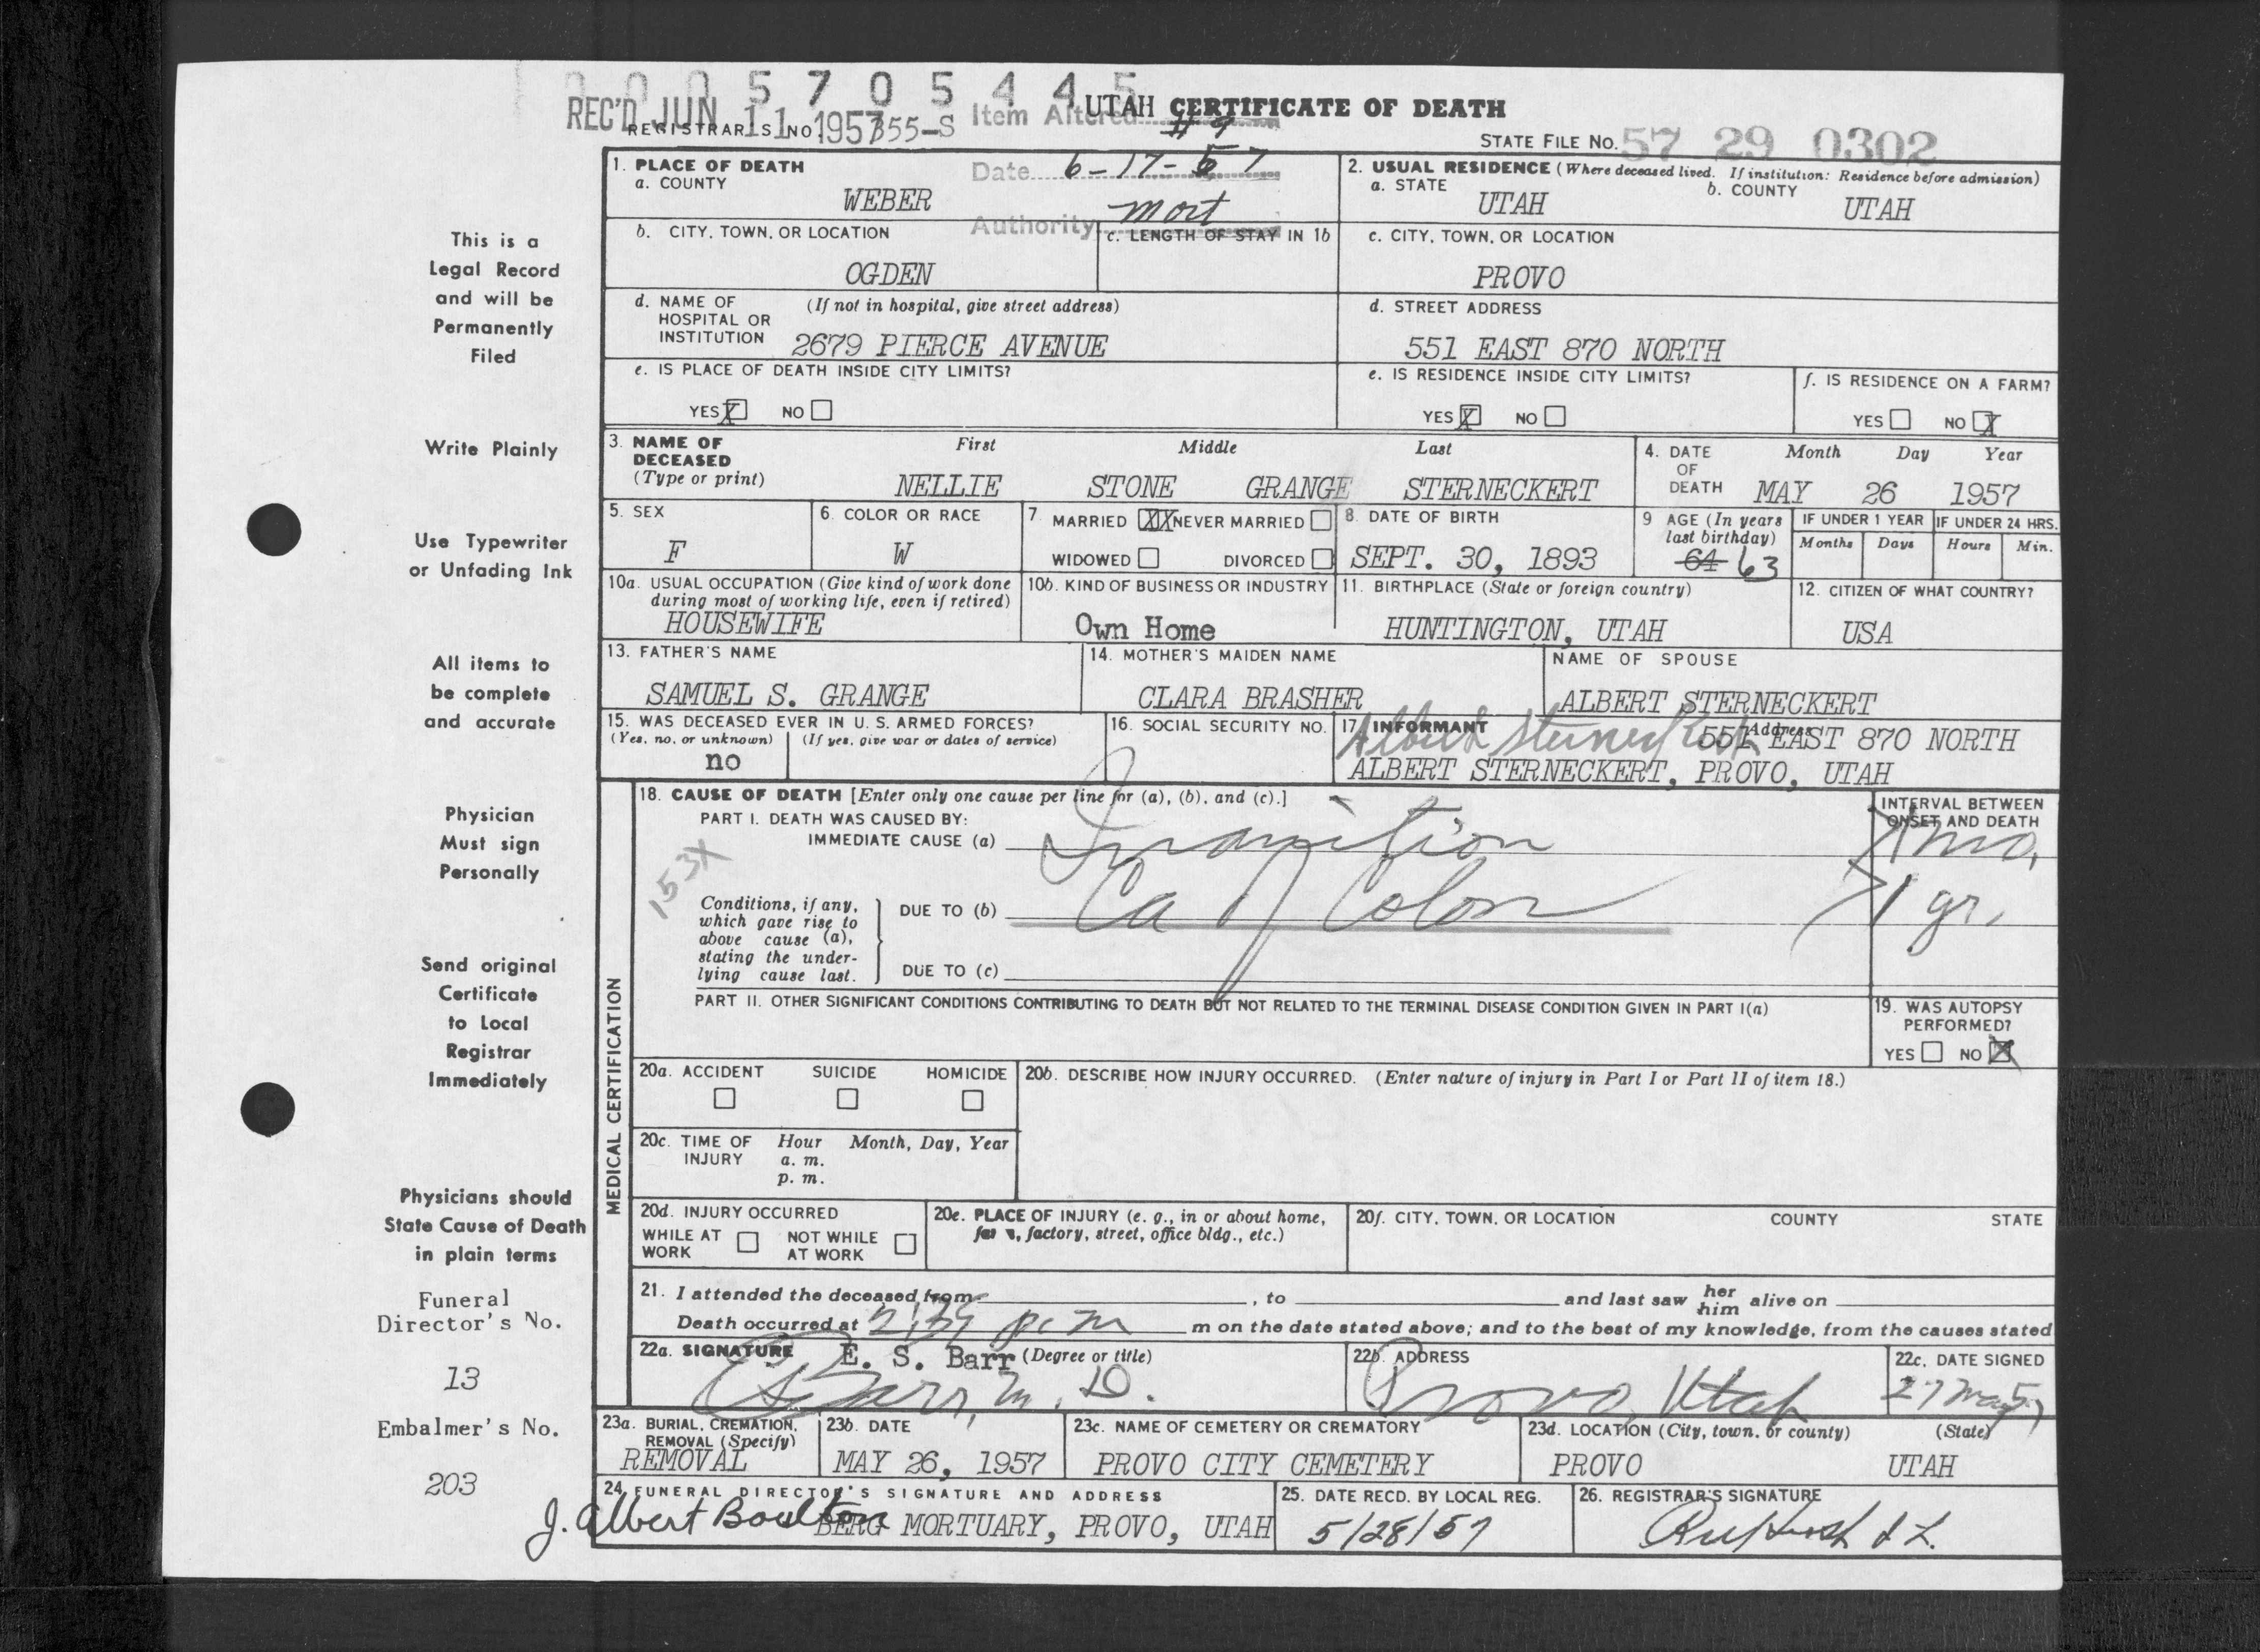 0 0 0 5 7 0 5 4 4 5
REC'D JUN 11 1957
REGISTRAR'S NO. 355-S
Item Altered #9
UTAH CERTIFICATE OF DEATH
STATE FILE NO. 57 29 0302
Date 6-17-57
Authority Mort
1. PLACE OF DEATH
a. COUNTY
WEBER
2. USUAL RESIDENCE (Where deceased lived. If institution: Residence before admission)
a. STATE
UTAH
b. COUNTY
UTAH
b. CITY, TOWN, OR LOCATION
OGDEN
c. LENGTH OF STAY IN 1b
c. CITY, TOWN, OR LOCATION
PROVO
d. NAME OF HOSPITAL OR INSTITUTION
(If not in hospital, give street address)
2679 PIERCE AVENUE
d. STREET ADDRESS
551 EAST 870 NORTH
e. IS PLACE OF DEATH INSIDE CITY LIMITS?
YES X NO
e. IS RESIDENCE INSIDE CITY LIMITS?
YES X NO
f. IS RESIDENCE ON A FARM?
YES NO X
3. NAME OF DECEASED (Type or print)
First Middle Last
NELLIE STONE GRANGE STERNECKERT
4. DATE OF DEATH
Month Day Year
MAY 26 1957
5. SEX
F
6. COLOR OR RACE
W
7. MARRIED XX NEVER MARRIED
WIDOWED DIVORCED
8. DATE OF BIRTH
SEPT. 30, 1893
9 AGE (In years last birthday)
64 63
IF UNDER 1 YEAR
Months Days
IF UNDER 24 HRS.
Hours Min.
10a. USUAL OCCUPATION (Give kind of work done during most of working life, even if retired)
HOUSEWIFE
10b. KIND OF BUSINESS OR INDUSTRY
Own Home
11. BIRTHPLACE (State or foreign country)
HUNTINGTON, UTAH
12. CITIZEN OF WHAT COUNTRY?
USA
13. FATHER'S NAME
SAMUEL S. GRANGE
14. MOTHER'S MAIDEN NAME
CLARA BRASHER
NAME OF SPOUSE
ALBERT STERNECKERT
15. WAS DECEASED EVER IN U. S. ARMED FORCES?
(Yes, no, or unknown) (If yes, give war or dates of service)
no
16. SOCIAL SECURITY NO.
17. INFORMANT Address
Albert Sterneckert
551 EAST 870 NORTH
ALBERT STERNECKERT, PROVO, UTAH
MEDICAL CERTIFICATION
18. CAUSE OF DEATH [Enter only one cause per line for (a), (b), and (c).]
PART I. DEATH WAS CAUSED BY:
IMMEDIATE CAUSE (a) Inanition
153X
Conditions, if any, which gave rise to above cause (a), stating the underlying cause last.
DUE TO (b) Ca of Colon
DUE TO (c)
INTERVAL BETWEEN ONSET AND DEATH
> 1 mo.
> 1 yr.
PART II. OTHER SIGNIFICANT CONDITIONS CONTRIBUTING TO DEATH BUT NOT RELATED TO THE TERMINAL DISEASE CONDITION GIVEN IN PART I(a)
19. WAS AUTOPSY PERFORMED?
YES NO X
20a. ACCIDENT SUICIDE HOMICIDE
20b. DESCRIBE HOW INJURY OCCURRED. (Enter nature of injury in Part I or Part II of item 18.)
20c. TIME OF INJURY
Hour Month, Day, Year
a. m.
p. m.
20d. INJURY OCCURRED
WHILE AT WORK NOT WHILE AT WORK
20e. PLACE OF INJURY (e. g., in or about home, farm, factory, street, office bldg., etc.)
20f. CITY, TOWN, OR LOCATION COUNTY STATE
21. I attended the deceased from , to and last saw her him alive on
Death occurred at 2:39 p. m m on the date stated above; and to the best of my knowledge, from the causes stated
22a. SIGNATURE E. S. Barr (Degree or title)
E S Barr, M. D.
22b. ADDRESS
Provo, Utah
22c. DATE SIGNED
27 May 57
23a. BURIAL, CREMATION, REMOVAL (Specify)
REMOVAL
23b. DATE
MAY 26, 1957
23c. NAME OF CEMETERY OR CREMATORY
PROVO CITY CEMETERY
23d. LOCATION (City, town, or county) (State)
PROVO UTAH
24. FUNERAL DIRECTOR'S SIGNATURE AND ADDRESS
J. Albert Boulton
BERG MORTUARY, PROVO, UTAH
25. DATE RECD. BY LOCAL REG.
5/28/57
26. REGISTRAR'S SIGNATURE
This is a
Legal Record
and will be
Permanently
Filed
Write Plainly
Use Typewriter
or Unfading Ink
All items to
be complete
and accurate
Physician
Must sign
Personally
Send original
Certificate
to Local
Registrar
Immediately
Physicians should
State Cause of Death
in plain terms
Funeral
Director's No.
13
Embalmer's No.
203